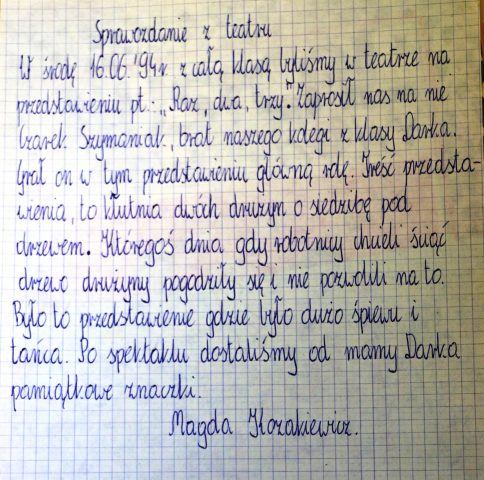 Sprawozdanie z teatru
W środę 16.06.'94r. z całą klasą byliśmy w teatrze na
przedstawieniu pt. „Raz, dwa, trzy". Zaprosił nas na nie
Czarek Szymaniak, brat naszego kolegi z klasy Darka.
Grał on w tym przedstawieniu główną rolę. Treść przedsta-
wienia, to kłutnia dwóch drużyn o siedzibę pod
drzewem. Któregoś dnia gdy robotnicy chcieli ściąć
drzewo drużyny pogodziły się i nie pozwolili na to.
Było to przedstawienie gdzie było dużo śpiewu i
tańca. Po spektaklu dostaliśmy od mamy Darka
pamiątkowe znaczki.
Magda Kozakiewicz.